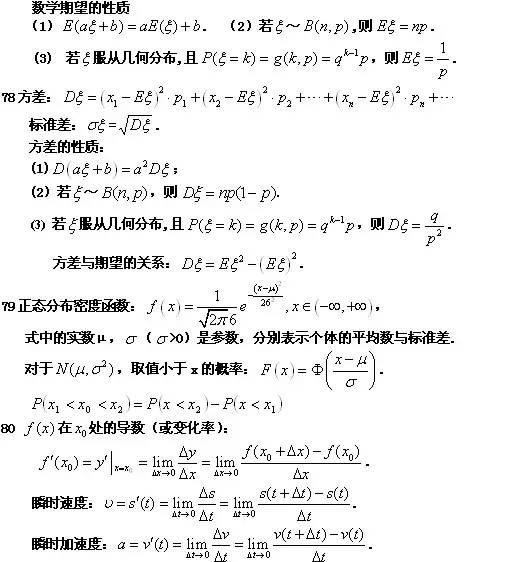 数学期望的性质
(1) E(aξ+b)=aE(ξ)+b. (2) 若ξ～B(n,p),则Eξ=np.
(3) 若ξ服从几何分布,且P(ξ=k)=g(k,p)=q^{k-1}p，则Eξ=\frac{1}{p}.
78方差：Dξ=(x_1-Eξ)^2·p_1+(x_2-Eξ)^2·p_2+⋯+(x_n-Eξ)^2·p_n+⋯
标准差：σξ=\sqrt{Dξ}.
方差的性质：
(1)D(aξ+b)=a^2Dξ；
(2) 若ξ～B(n,p)，则Dξ=np(1-p).
(3) 若ξ服从几何分布,且P(ξ=k)=g(k,p)=q^{k-1}p，则Dξ=\frac{q}{p^2}.
方差与期望的关系：Dξ=Eξ^2-(Eξ)^2.
79正态分布密度函数：f(x)=\frac{1}{\sqrt{2π}6}e^{-\frac{(x-μ)^2}{26^2}},x∈(-∞,+∞)，
式中的实数μ，σ（σ>0）是参数，分别表示个体的平均数与标准差.
对于N(μ,σ^2)，取值小于x的概率：F(x)=Φ(\frac{x-μ}{σ}).
P(x_1<x_0<x_2)=P(x<x_2)-P(x<x_1)
80 f(x)在x_0处的导数（或变化率）：
f′(x_0)=y′|_{x=x_0}=\lim_{Δx→0}\frac{Δy}{Δx}=\lim_{Δx→0}\frac{f(x_0+Δx)-f(x_0)}{Δx}.
瞬时速度：υ=s′(t)=\lim_{Δt→0}\frac{Δs}{Δt}=\lim_{Δt→0}\frac{s(t+Δt)-s(t)}{Δt}.
瞬时加速度：a=v′(t)=\lim_{Δt→0}\frac{Δv}{Δt}=\lim_{Δt→0}\frac{v(t+Δt)-v(t)}{Δt}.